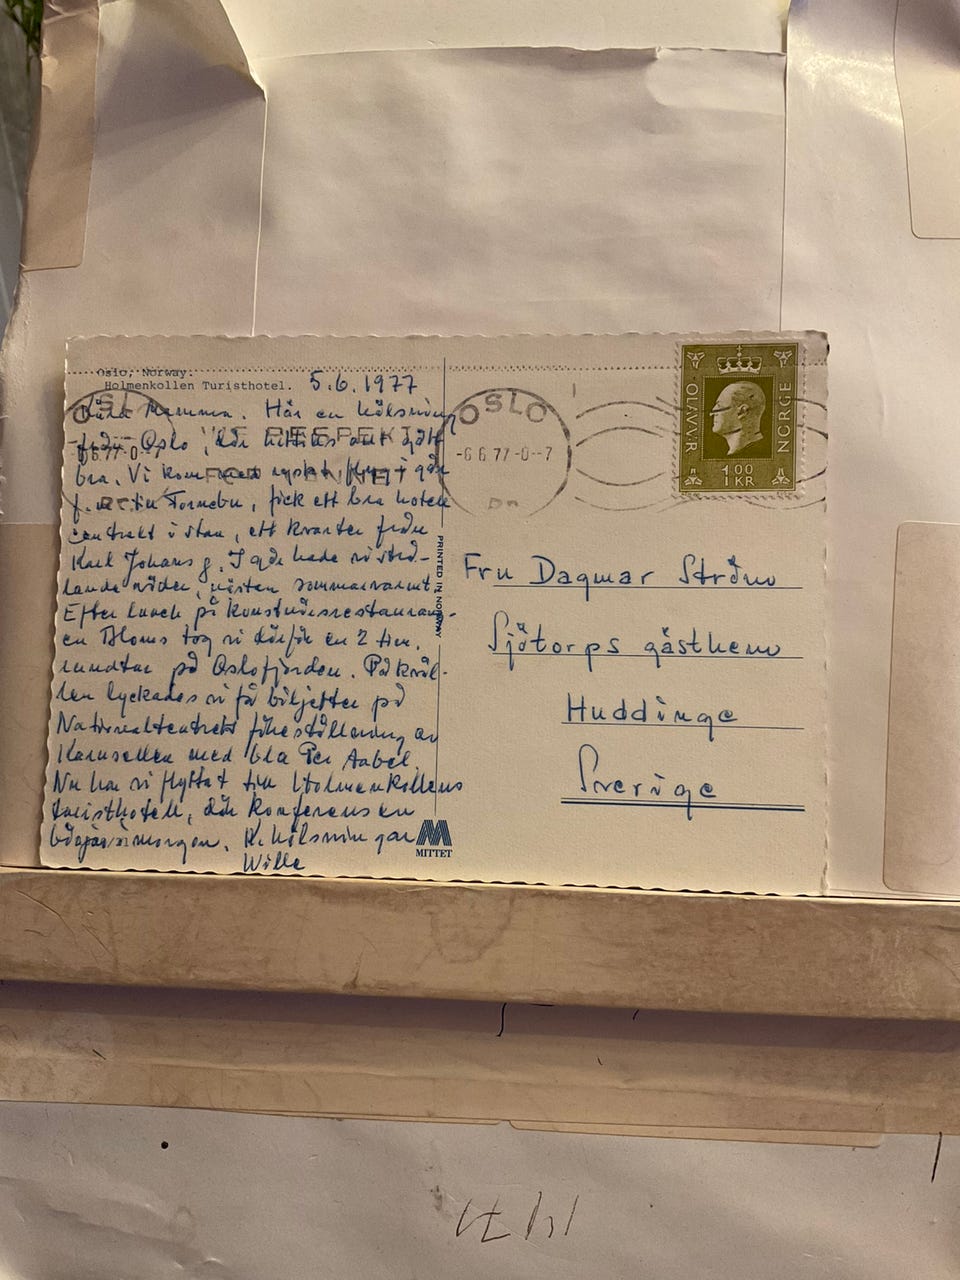 Oslo, Norway.
Holmenkollen Turisthotel.
5.6.1977
Kära Mamma. Här en hälsning
från Oslo, där hittills allt gått
bra. Vi kom med flyg i går
f.m. till Fornebu, fick ett bra hotell
centralt i stan, ett kvarter från
Karl Johans g. I går hade vi strå-
lande väder, nästan sommarvarmt.
Efter lunch på konstnärsrestaurang-
en Bloms tog vi därför en 2 tim.
rundtur på Oslofjorden. På kväl-
len lyckades vi få biljetter på
Nationalteatrets föreställning av
Karusellen med bla Per Aabel.
Nu har vi flyttat till Holmenkollens
turisthotell, där konferensen
börjar i morgon. Hälsningar
Wille
PRINTED IN NORWAY
MITTET
OSLO
-6 6 77-0--7
VIS RESPEKT
FOR
OSLO
-6 6 77-0--7
OLAV.V.R
NORGE
1.00
1 KR
Fru Dagmar Ström
Sjötorps gästhem
Huddinge
Sverige